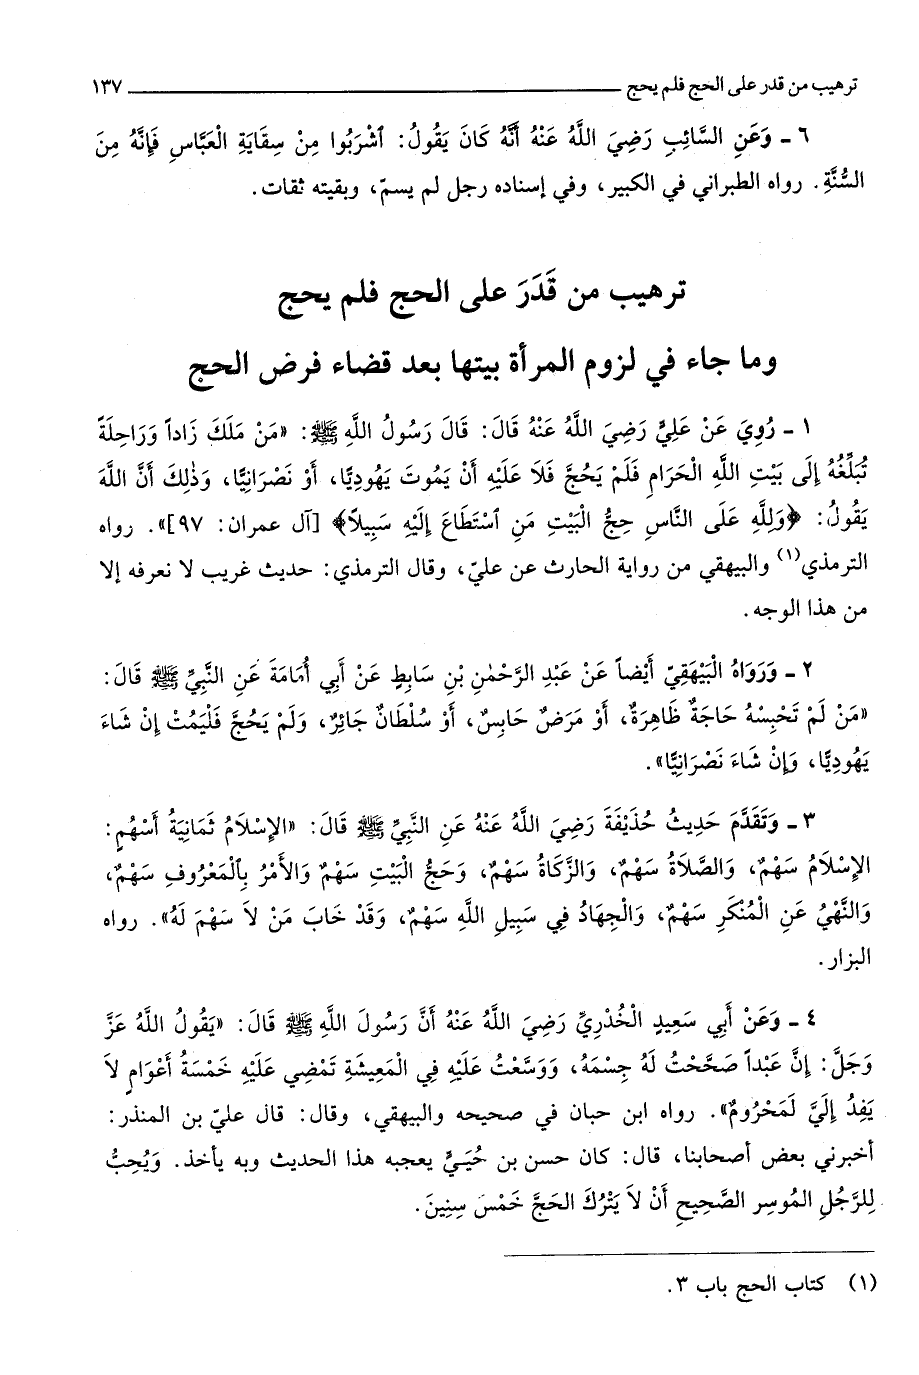 ترهيب من قدر على الحج فلم يحج ١٣٧
٦ ـ وَعَنِ السَّائِبِ رَضِيَ اللَّهُ عَنْهُ أَنَّهُ كَانَ يَقُولُ: ٱشْرَبُوا مِنْ سِقَايَةِ الْعَبَّاسِ فَإِنَّهُ مِنَ
السُّنَّةِ. رواه الطبراني في الكبير، وفي إسناده رجل لم يسمّ، وبقيته ثقات.
ترهيب من قَدَرَ على الحج فلم يحج
وما جاء في لزوم المرأة بيتها بعد قضاء فرض الحج
١ ـ رُوِيَ عَنْ عَلِيٍّ رَضِيَ اللَّهُ عَنْهُ قَالَ: قَالَ رَسُولُ اللَّهِ ﷺ: «مَنْ مَلَكَ زَاداً وَرَاحِلَةً
تُبَلِّغُهُ إِلَى بَيْتِ اللَّهِ الْحَرَامِ فَلَمْ يَحُجَّ فَلاَ عَلَيْهِ أَنْ يَمُوتَ يَهُودِيًّا، أَوْ نَصْرَانِيًّا، وَذٰلِكَ أَنَّ اللَّهَ
يَقُولُ: ﴿وَلِلَّهِ عَلَى النَّاسِ حِجُّ الْبَيْتِ مَنِ ٱسْتَطَاعَ إِلَيْهِ سَبِيلاً﴾ [آل عمران: ٩٧]». رواه
الترمذي(١) والبيهقي من رواية الحارث عن عليّ، وقال الترمذي: حديث غريب لا نعرفه إلا
من هذا الوجه.
٢ ـ وَرَوَاهُ الْبَيْهَقِيّ أَيْضاً عَنْ عَبْدِ الرَّحْمٰنِ بْنِ سَابِطٍ عَنْ أَبِي أُمَامَةَ عَنِ النَّبِيِّ ﷺ قَالَ:
«مَنْ لَمْ تَحْبِسْهُ حَاجَةٌ ظَاهِرَةٌ، أَوْ مَرَضٌ حَابِسٌ، أَوْ سُلْطَانٌ جَائِرٌ، وَلَمْ يَحُجَّ فَلْيَمُتْ إِنْ شَاءَ
يَهُودِيًّا، وَإِنْ شَاءَ نَصْرَانِيًّا».
٣ ـ وَتَقَدَّمَ حَدِيثُ حُذَيْفَةَ رَضِيَ اللَّهُ عَنْهُ عَنِ النَّبِيِّ ﷺ قَالَ: «الإِسْلاَمُ ثَمَانِيَةُ أَسْهُمٍ:
الإِسْلاَمُ سَهْمٌ، وَالصَّلاَةُ سَهْمٌ، وَالزَّكَاةُ سَهْمٌ، وَحَجُّ الْبَيْتِ سَهْمٌ وَالأَمْرُ بِٱلْمَعْرُوفِ سَهْمٌ،
وَالنَّهْيُ عَنِ الْمُنْكَرِ سَهْمٌ، وَالْجِهَادُ فِي سَبِيلِ اللَّهِ سَهْمٌ، وَقَدْ خَابَ مَنْ لاَ سَهْمَ لَهُ». رواه
البزار.
٤ ـ وَعَنْ أَبِي سَعِيدٍ الْخُدْرِيِّ رَضِيَ اللَّهُ عَنْهُ أَنَّ رَسُولَ اللَّهِ ﷺ قَالَ: «يَقُولُ اللَّهُ عَزَّ
وَجَلَّ: إِنَّ عَبْداً صَحَّحْتُ لَهُ جِسْمَهُ، وَوَسَّعْتُ عَلَيْهِ فِي الْمَعِيشَةِ تَمْضِي عَلَيْهِ خَمْسَةُ أَعْوَامٍ لاَ
يَفِدُ إِلَيَّ لَمَحْرُومٌ». رواه ابن حبان في صحيحه والبيهقي، وقال: قال عليّ بن المنذر:
أخبرني بعض أصحابنا، قال: كان حسن بن حُيَيٍّ يعجبه هذا الحديث وبه يأخذ. وَيُحِبُّ
لِلرَّجُلِ المُوسِرِ الصَّحِيحِ أَنْ لاَ يَتْرُكَ الحَجَّ خَمْسَ سِنِينَ.
(١) كتاب الحج باب ٣.